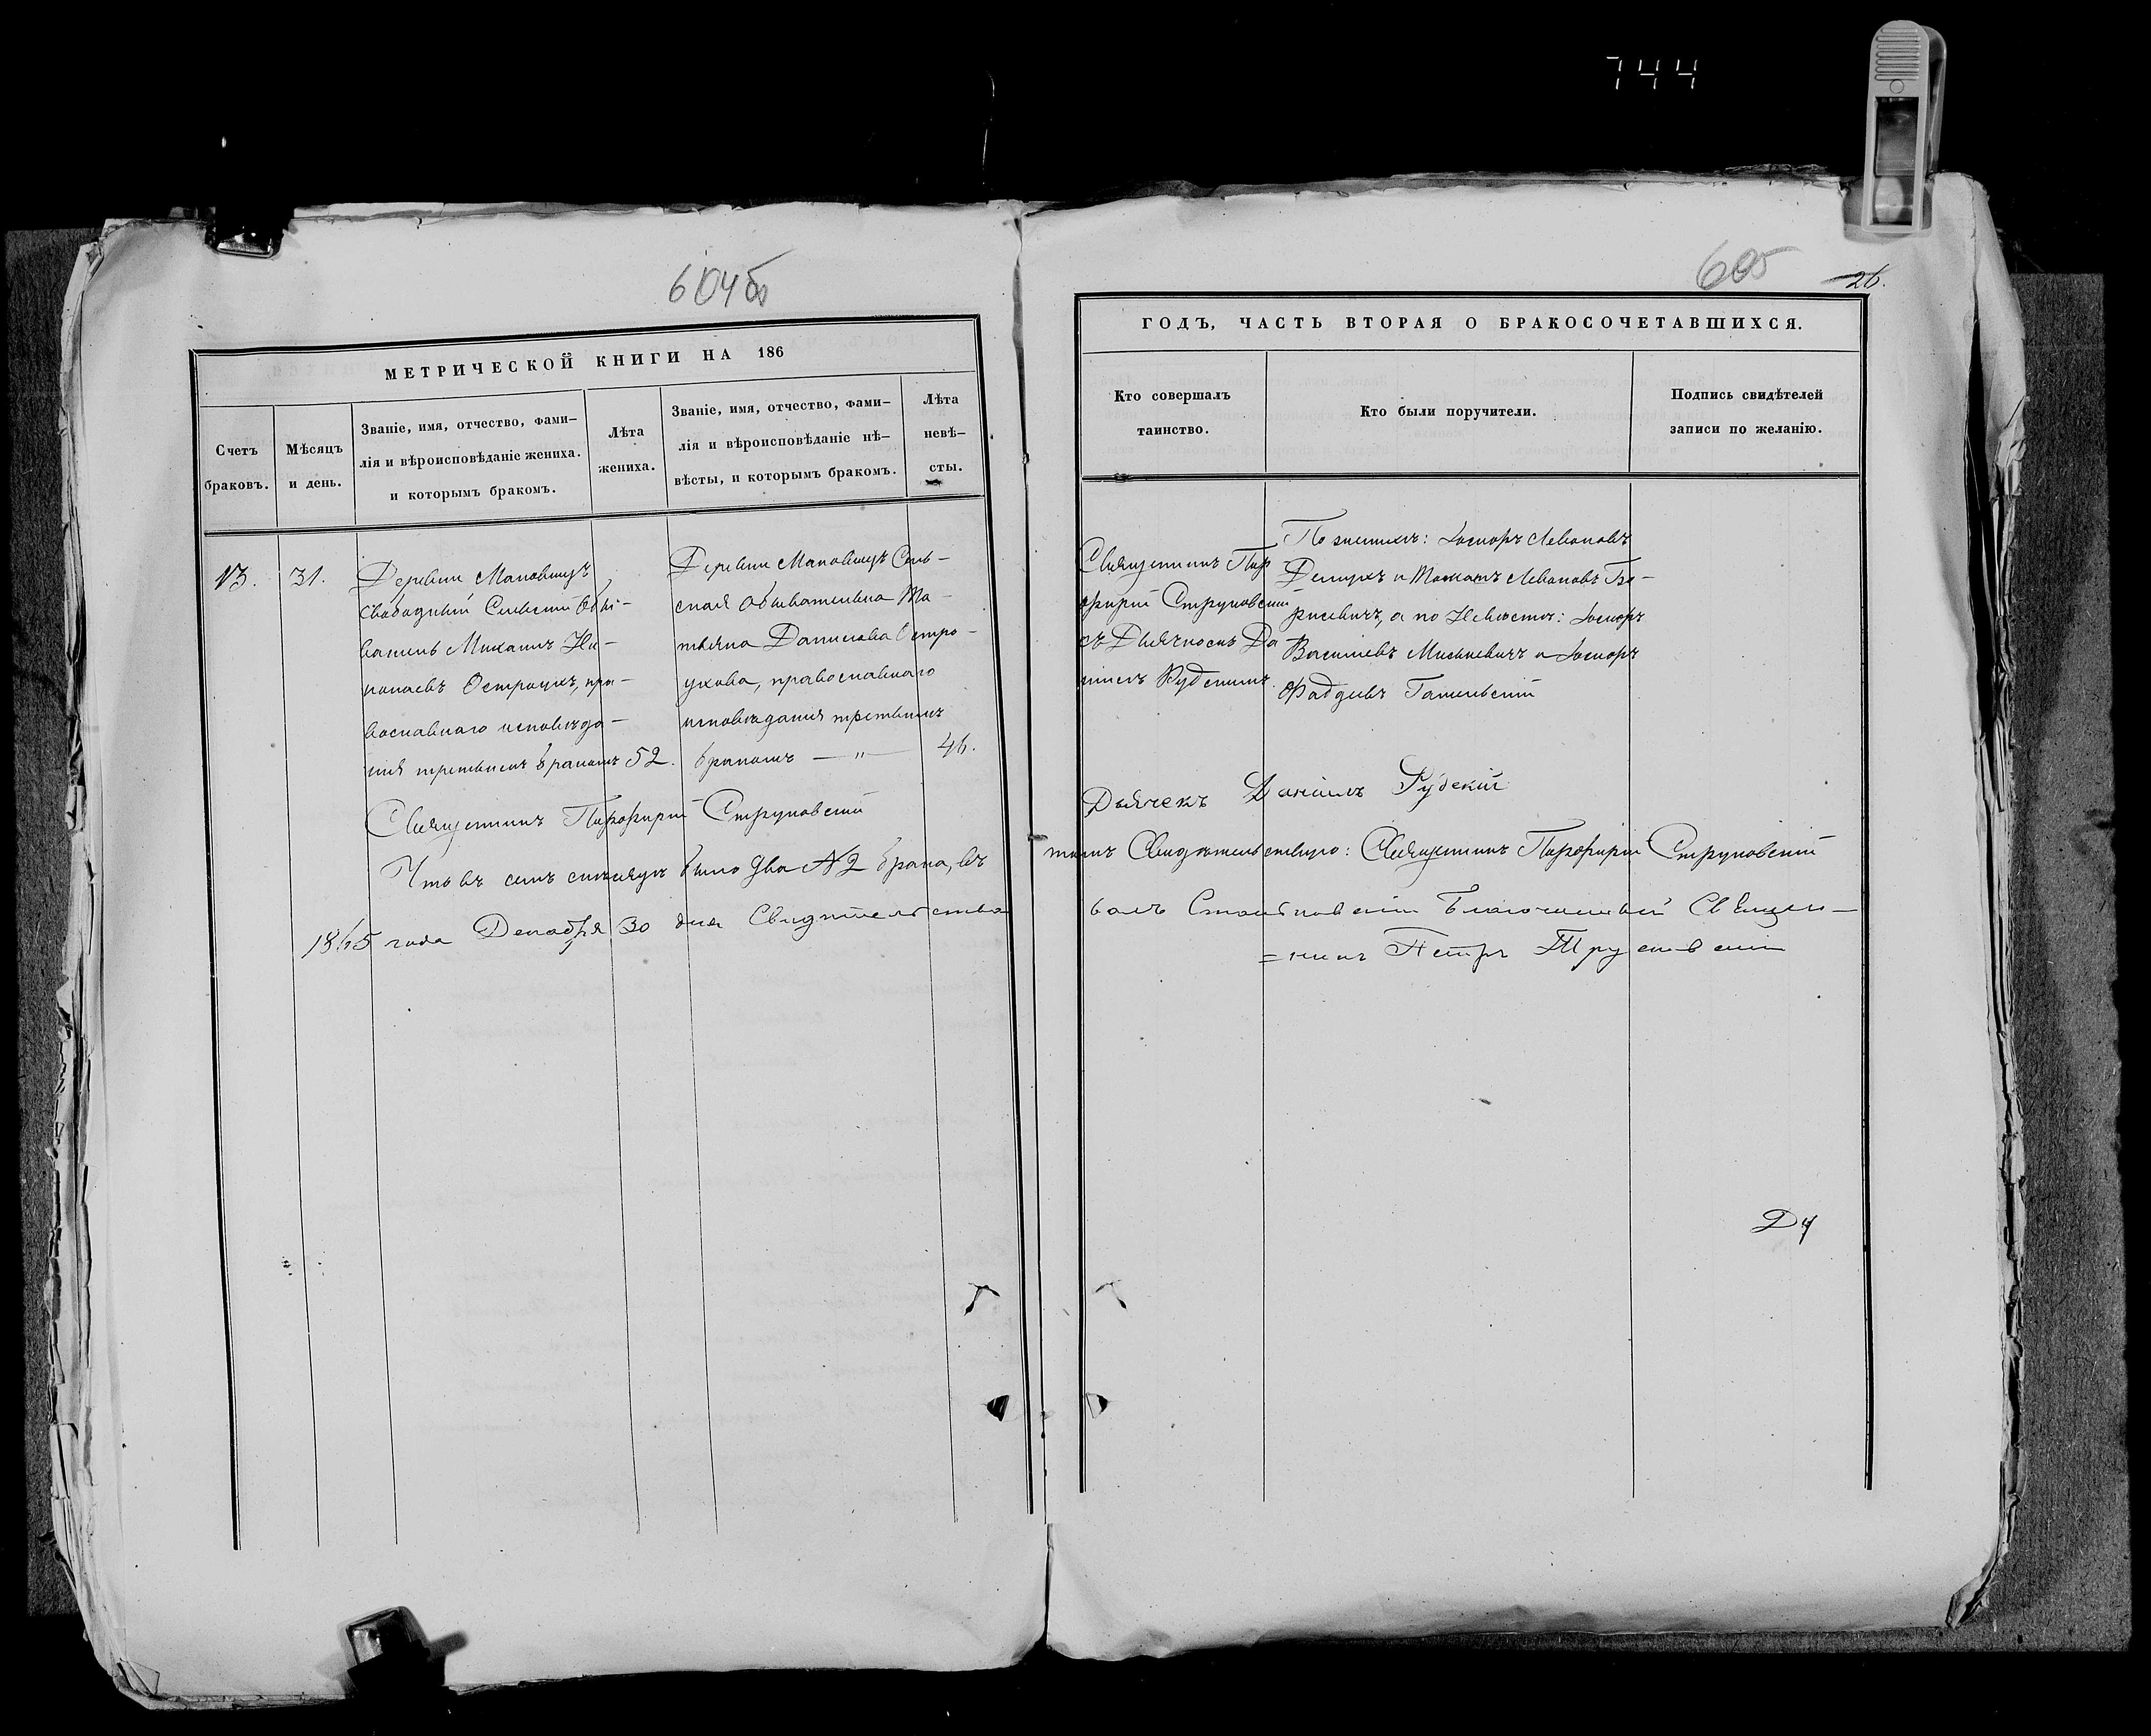 744
604об
605
26.
МЕТРИЧЕСКОЙ КНИГИ НА 186
Счетъ
браковъ.
Мѣсяцъ
и день.
Званіе, имя, отчество, фами-
лія и вѣроисповѣданіе жениха.
и которымъ бракомъ.
Лѣта
жениха.
Званіе, имя, отчество, фами-
лія и вѣроисповѣданіе нѣ-
вѣсты, и которымъ бракомъ.
Лѣта
невѣ-
сты.
13.
31.
Деревни Маковищъ
свободный Сельскій Обы-
ватель Михаилъ Ни-
колаевъ Остроухъ, пра-
вославнаго исповѣда-
нія третьимъ бракомъ
52.
Деревни Маковищъ Сель-
ская обывателька Та-
тьяна Данилова Остро-
ухова, православнаго
исповѣданія третьимъ
бракомъ — " —
46.
Священникъ Порфирій Струковскій
Что въ семъ мѣсяцѣ было два № 2 брака, въ
1865 года Декабря 30 дня Свидѣтельство
ГОДЪ, ЧАСТЬ ВТОРАЯ О БРАКОСОЧЕТАВШИХСЯ.
Кто совершалъ
таинство.
Кто были поручители.
Подпись свидѣтелей
записи по желанію.
Священникъ Пор
фирій Струковскій
съ Дьячкомъ Да
ніилъ Рудскимъ
По женихѣ: Іосифъ Левоновъ
и Томашъ Левоновъ Бо-
рисевичъ, а по Невѣстѣ: Іосифъ
Васильевъ Миськевичъ и Іосифъ
Фаддеевъ
Дьячекъ Даніилъ Рудскій
томъ Свидѣтельствую: Священникъ Порфирій Струковскій
валъ Благочинный Священ-
=никъ Петръ